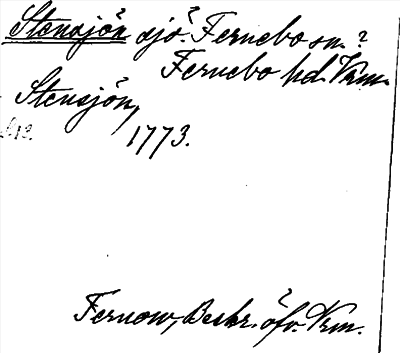 Stensjön sjö. Fernebo sn.?
Fernebo hd. Vrm.
Stensjön,
1773.
Fernow, Beskr. öfv. Vrm.